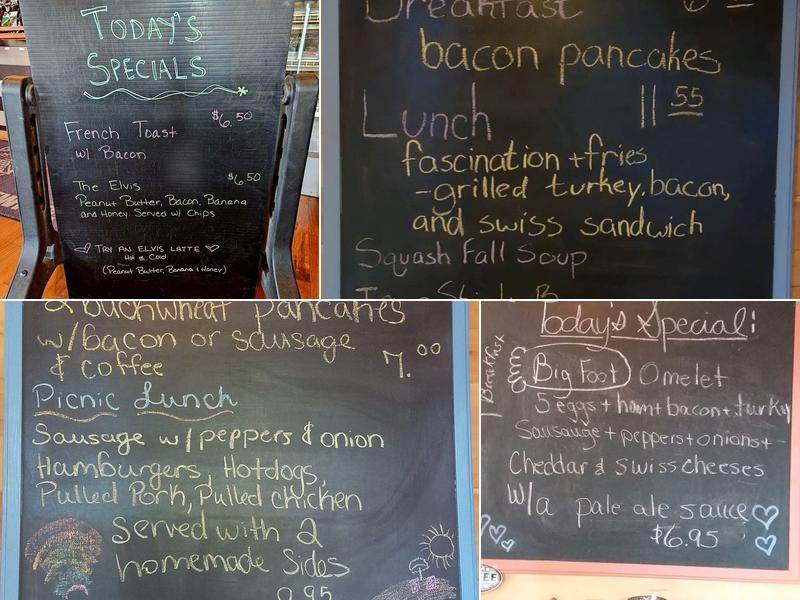 TODAY'S
SPECIALS
$6.50
French Toast
w/ Bacon
$6.50
The Elvis
Peanut Butter, Bacon, Banana
and Honey Served w/ Chips
TRY AN ELVIS LATTE
Hot & Cold
(Peanut Butter, Banana & Honey)
Breakfast
bacon pancakes
11 55
Lunch
fascination + fries
-grilled turkey, bacon,
and swiss sandwich
Squash Fall Soup
2 buckwheat pancakes
w/bacon or sausage
& coffee 7.00
Picnic Lunch
Sausage w/peppers & onion
Hamburgers, Hotdogs,
Pulled Pork, Pulled chicken
Served with 2
homemade Sides
9.95
Today's Special:
Breakfast
Big Foot Omelet
5 eggs + ham + bacon + turkey
Sausauge + peppers + onions +
Cheddar & Swiss cheeses
w/a pale ale sauce
$6.95